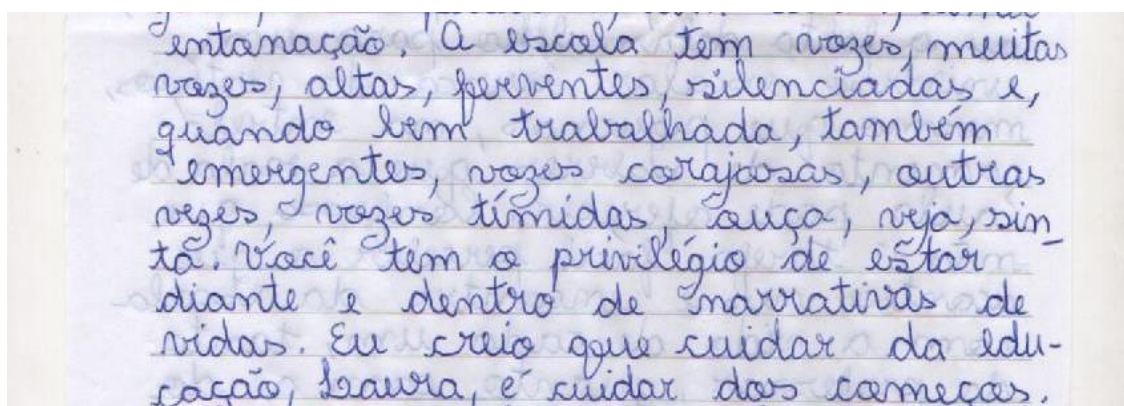 entonação. A escola tem vozes, muitas
vozes, altas, ferventes, silenciadas e,
quando bem trabalhada, também
emergentes, vozes corajosas, outras
vezes, vozes tímidas, ouça, veja, sin-
ta. Você tem o privilégio de estar
diante e dentro de narrativas de
vidas. Eu creio que cuidar da edu-
cação, Laura, é cuidar dos começos.